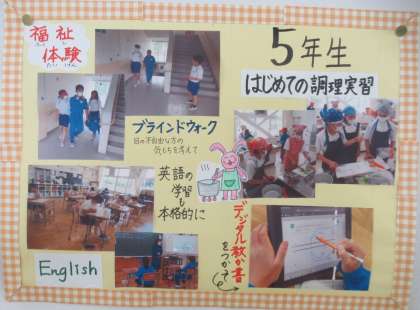 福祉
ふくし
体験
たいけん
5年生
はじめての調理実習
ブラインドウォーク
目の不自由な方の
気もちを考えて
英語の
学習も
本格的に
デジタル教か書
をつかって
English